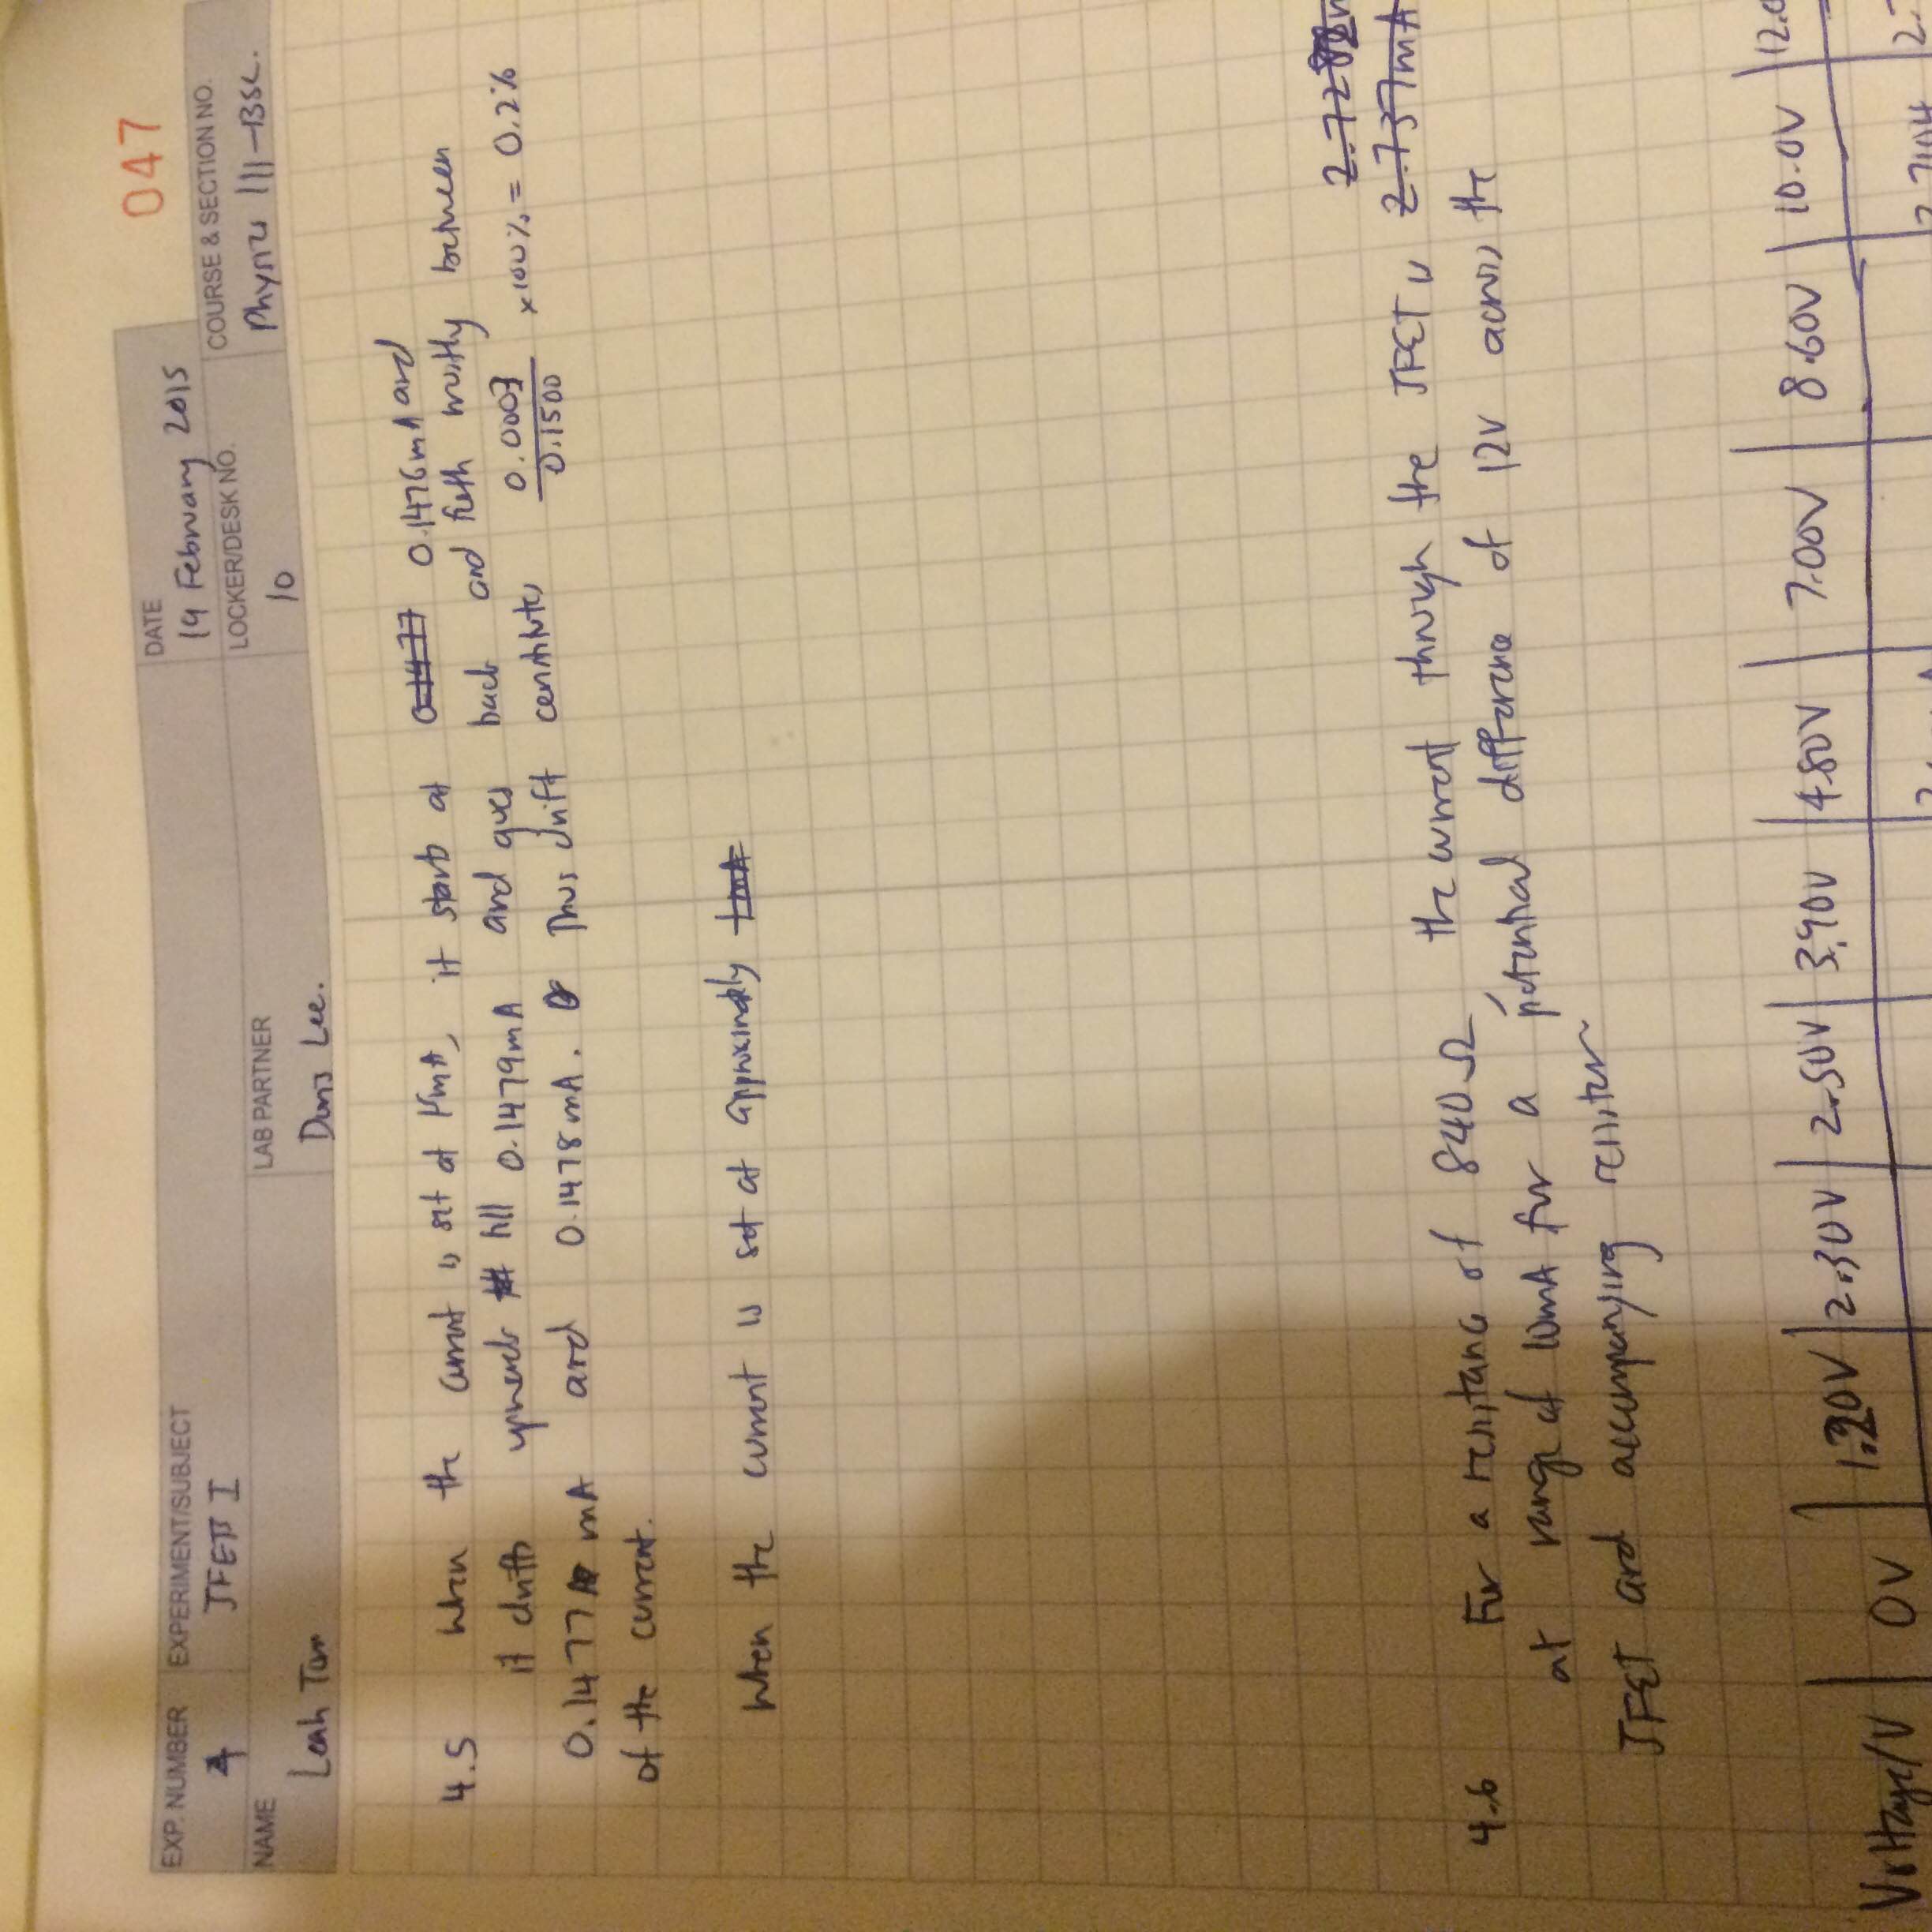 047
EXP. NUMBER EXPERIMENT/SUBJECT DATE
4 JFETs I 19 February 2015
NAME LAB PARTNER LOCKER/DESK NO. COURSE & SECTION NO.
Leah Tom Doris Lee. 10 Physics 111-BSC.
4.5 When the current is set at mA, it starts at 0.1477 0.1476mA and
it drifts upwards till 0.1479mA and goes back and forth mostly between
0.1477 mA and 0.1478mA. Thus drift constitutes 0.0003/0.1500 ×100% = 0.2%
of the current.
When the current is set at approximately 1mA
2.737mA
4.6 For a resistance of 840Ω, the current through the JFET is
at range of 10mA for a potential difference of 12V across the
JFET and accompanying resistor
Voltage/V 0V 1.20V 2.30V 2.50V 3.90V 4.80V 7.00V 8.60V 10.0V